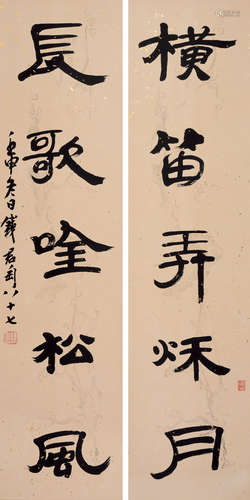 橫笛弄秌月
長歌唫松風
壬申冬日錢君匋八十七